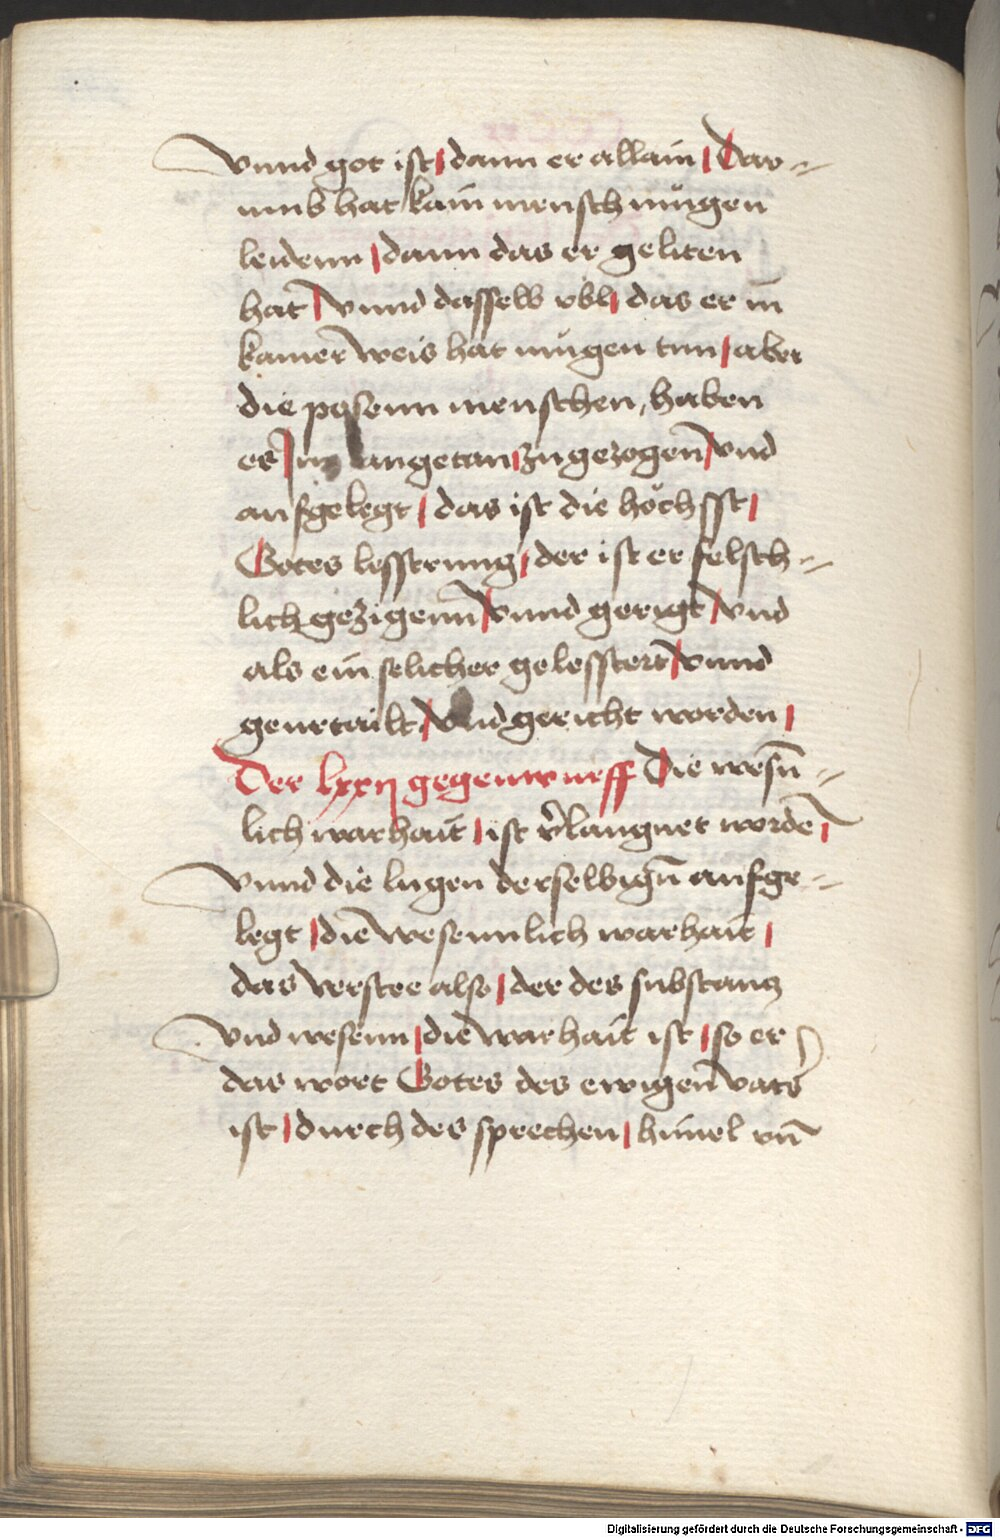 vnnd got ist | dann er allain | Dar=
umb hat kain mensch mügen
leidenn | dann das er geliten
hat | vnnd dasselb vbl | das er in
kainer weis hat mügen tun | aber
die posenn menschen, haben
es | im angetan | zu gezogen | vnd
aufgelegt | das ist die höchsst |
Gotes lesstrung | der ist er felsch=
lich gezigenn | vnnd gerügt | vnd
als ein selicher gelesstert | vnnd
geurtailt | vnd gericht worden |
Der lxxij gegenwurff Die wesn̄=
lich warhait | ist v̄langnet worde̅ |
vnnd die lugen derselbign̄ aufge=
legt | die wesennlich warhait |
das verstee also | der des substantz
vnd wesenn | die warhait ist | so er
das wort Gotes des ewigen vats
ist | durch des sprechen | himel vn̄
Digitalisierung gefördert durch die Deutsche Forschungsgemeinschaft - DFG